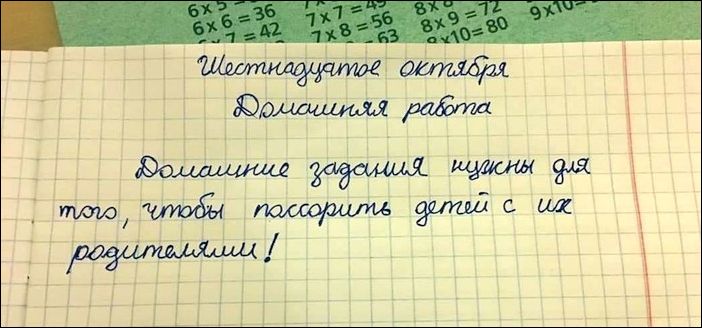 6 x 5 =
6 x 6 = 36
x 7 = 42
7 x 7 = 49
7 x 8 = 56
= 63
8 x 8
8 x 9 = 72
8 x 10 = 80
9 x 10 =
Шестнадцатое октября
Домашняя работа
Домашние задания нужны для
того, чтобы поссорить детей с их
родителями!